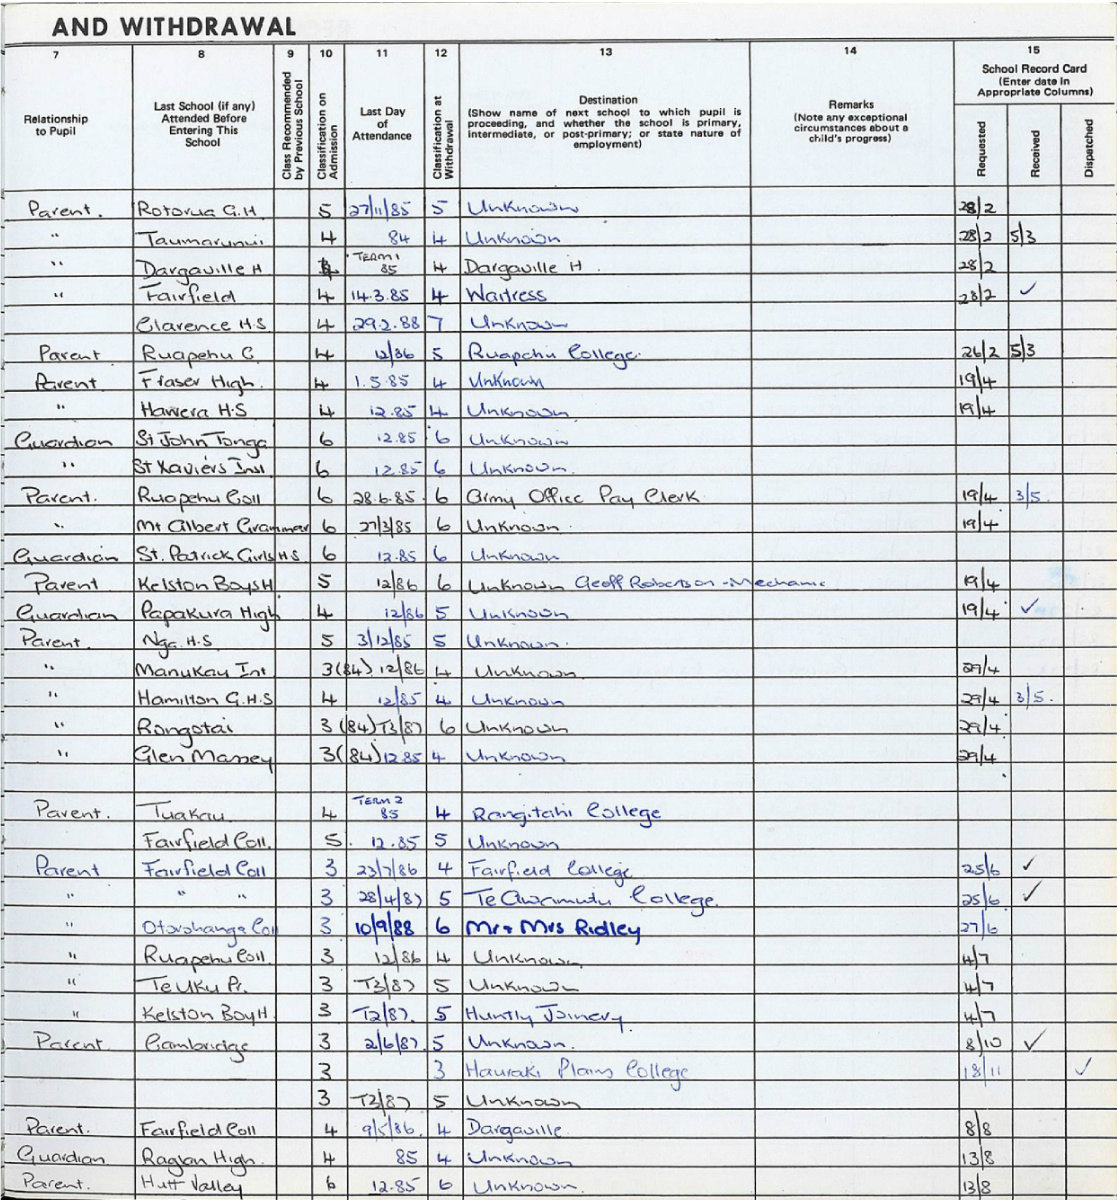 AND WITHDRAWAL
7 8 9 10 11 12 13 14 15
Relationship to Pupil
Last School (if any) Attended Before Entering This School
Class Recommended by Previous School
Classification on Admission
Last Day of Attendance
Classification at Withdrawal
Destination
(Show name of next school to which pupil is proceeding, and whether the school is primary, intermediate, or post-primary; or state nature of employment)
Remarks
(Note any exceptional circumstances about a child's progress)
School Record Card
(Enter date in Appropriate Columns)
Requested
Received
Dispatched
Parent. Rotorua G.H. 5 27/11/85 5 Unknown 28/2
" Taumarunui 4 84 4 Unknown 28/2 5/3
" Dargaville H TERM 1 85 4 Dargaville H. 28/2
" Fairfield 4 14.3.85 4 Waitress 28/2 ✓
Clarence H.S 4 29.2.88 7 Unknown
Parent Ruapehu C. 4 12/86 5 Ruapehu College. 26/2 5/3
Parent Fraser High. 4 1.5.85 4 Unknown 19/4
" Hawera H.S 4 12.85 4 Unknown 19/4
Guardian St John Tonga 6 12.85 6 Unknown
" St Xaviers Inst 6 12.85 6 Unknown.
Parent. Ruapehu Coll 6 28.6.85. 6 Army Office Pay Clerk. 19/4 3/5.
" Mt Albert Grammer 6 27/3/85 6 Unknown. 19/4
Guardian St. Patrick Girls H.S. 6 12.85 6 Unknown
Parent Kelston Boys H 5 12/86 6 Unknown Geoff Robertson - Mechanic 19/4
Guardian Papakura High 4 12/86 5 Unknown 19/4 ✓
Parent Nga. H.S. 5 3/12/85 5 Unknown.
" Manukau Int 3(84). 12/86 4 Unknown. 29/4
" Hamilton G.H.S 4 12/85 4 Unknown 29/4 3/5.
" Rongotai 3 (84) T3/87 6 Unknown 29/4
" Glen Massey 3(84) 12.85 4 Unknown 29/4
Parent. Tuakau. 4 TERM 2 85 4 Rangitahi College
Fairfield Coll. 5. 12.85 5 Unknown
Parent Fairfield Coll 3 23/7/86 4 Fairfield College 25/6 ✓
" " " 3 28/4/87 5 Te Awamutu College. 25/6 ✓
" Otorohanga Col 3 10/9/88 6 Mr + Mrs Ridley 27/6
" Ruapehu Coll. 3 12/86 4 Unknown. 4/7
" Te Uku Pr. 3 T3/87 5 Unknown 4/7
" Kelston Boy H 3 T2/87. 5 Huntly Joinery. 4/7
Parent. Cambridge 3 2/6/87. 5 Unknown. 8/10 ✓
3 3 Hauraki Plains College 18/11 ✓
3 T3/87 5 Unknown
Parent. Fairfield Coll 4 9/5/86. 4 Dargaville. 8/8
Guardian Raglan High. 4 85 4 Unknown 13/8
Parent. Hutt Valley 6 12.85 6 Unknown. 13/8